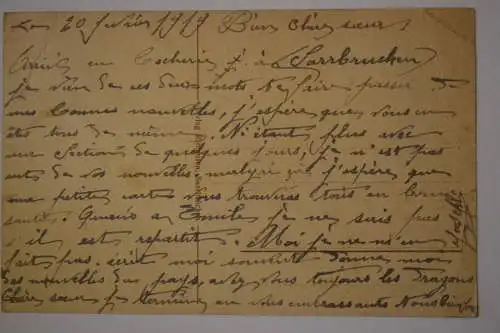 Le 20 Juin 1919 Bien Chère sœur
en à Sarrbrucken
je viens de ces deux mots te faire passer de
mes bonnes nouvelles, j'espère que vous en
êtes tous de même. N'étant plus avec
ma section de quelques jours, je n'est pas
eut de vos nouvelles, malgré ça j'espère que
ma petite carte vous trouvera tous en bonne
santé, a Emile je ne sais pas
s'il est repartit. Moi je ne m'en
fait pas. écrit moi souvent donne moi
des nouvelles du pays, avez vous toujours les Dragons
Chère sœur je termine en vous embrassants